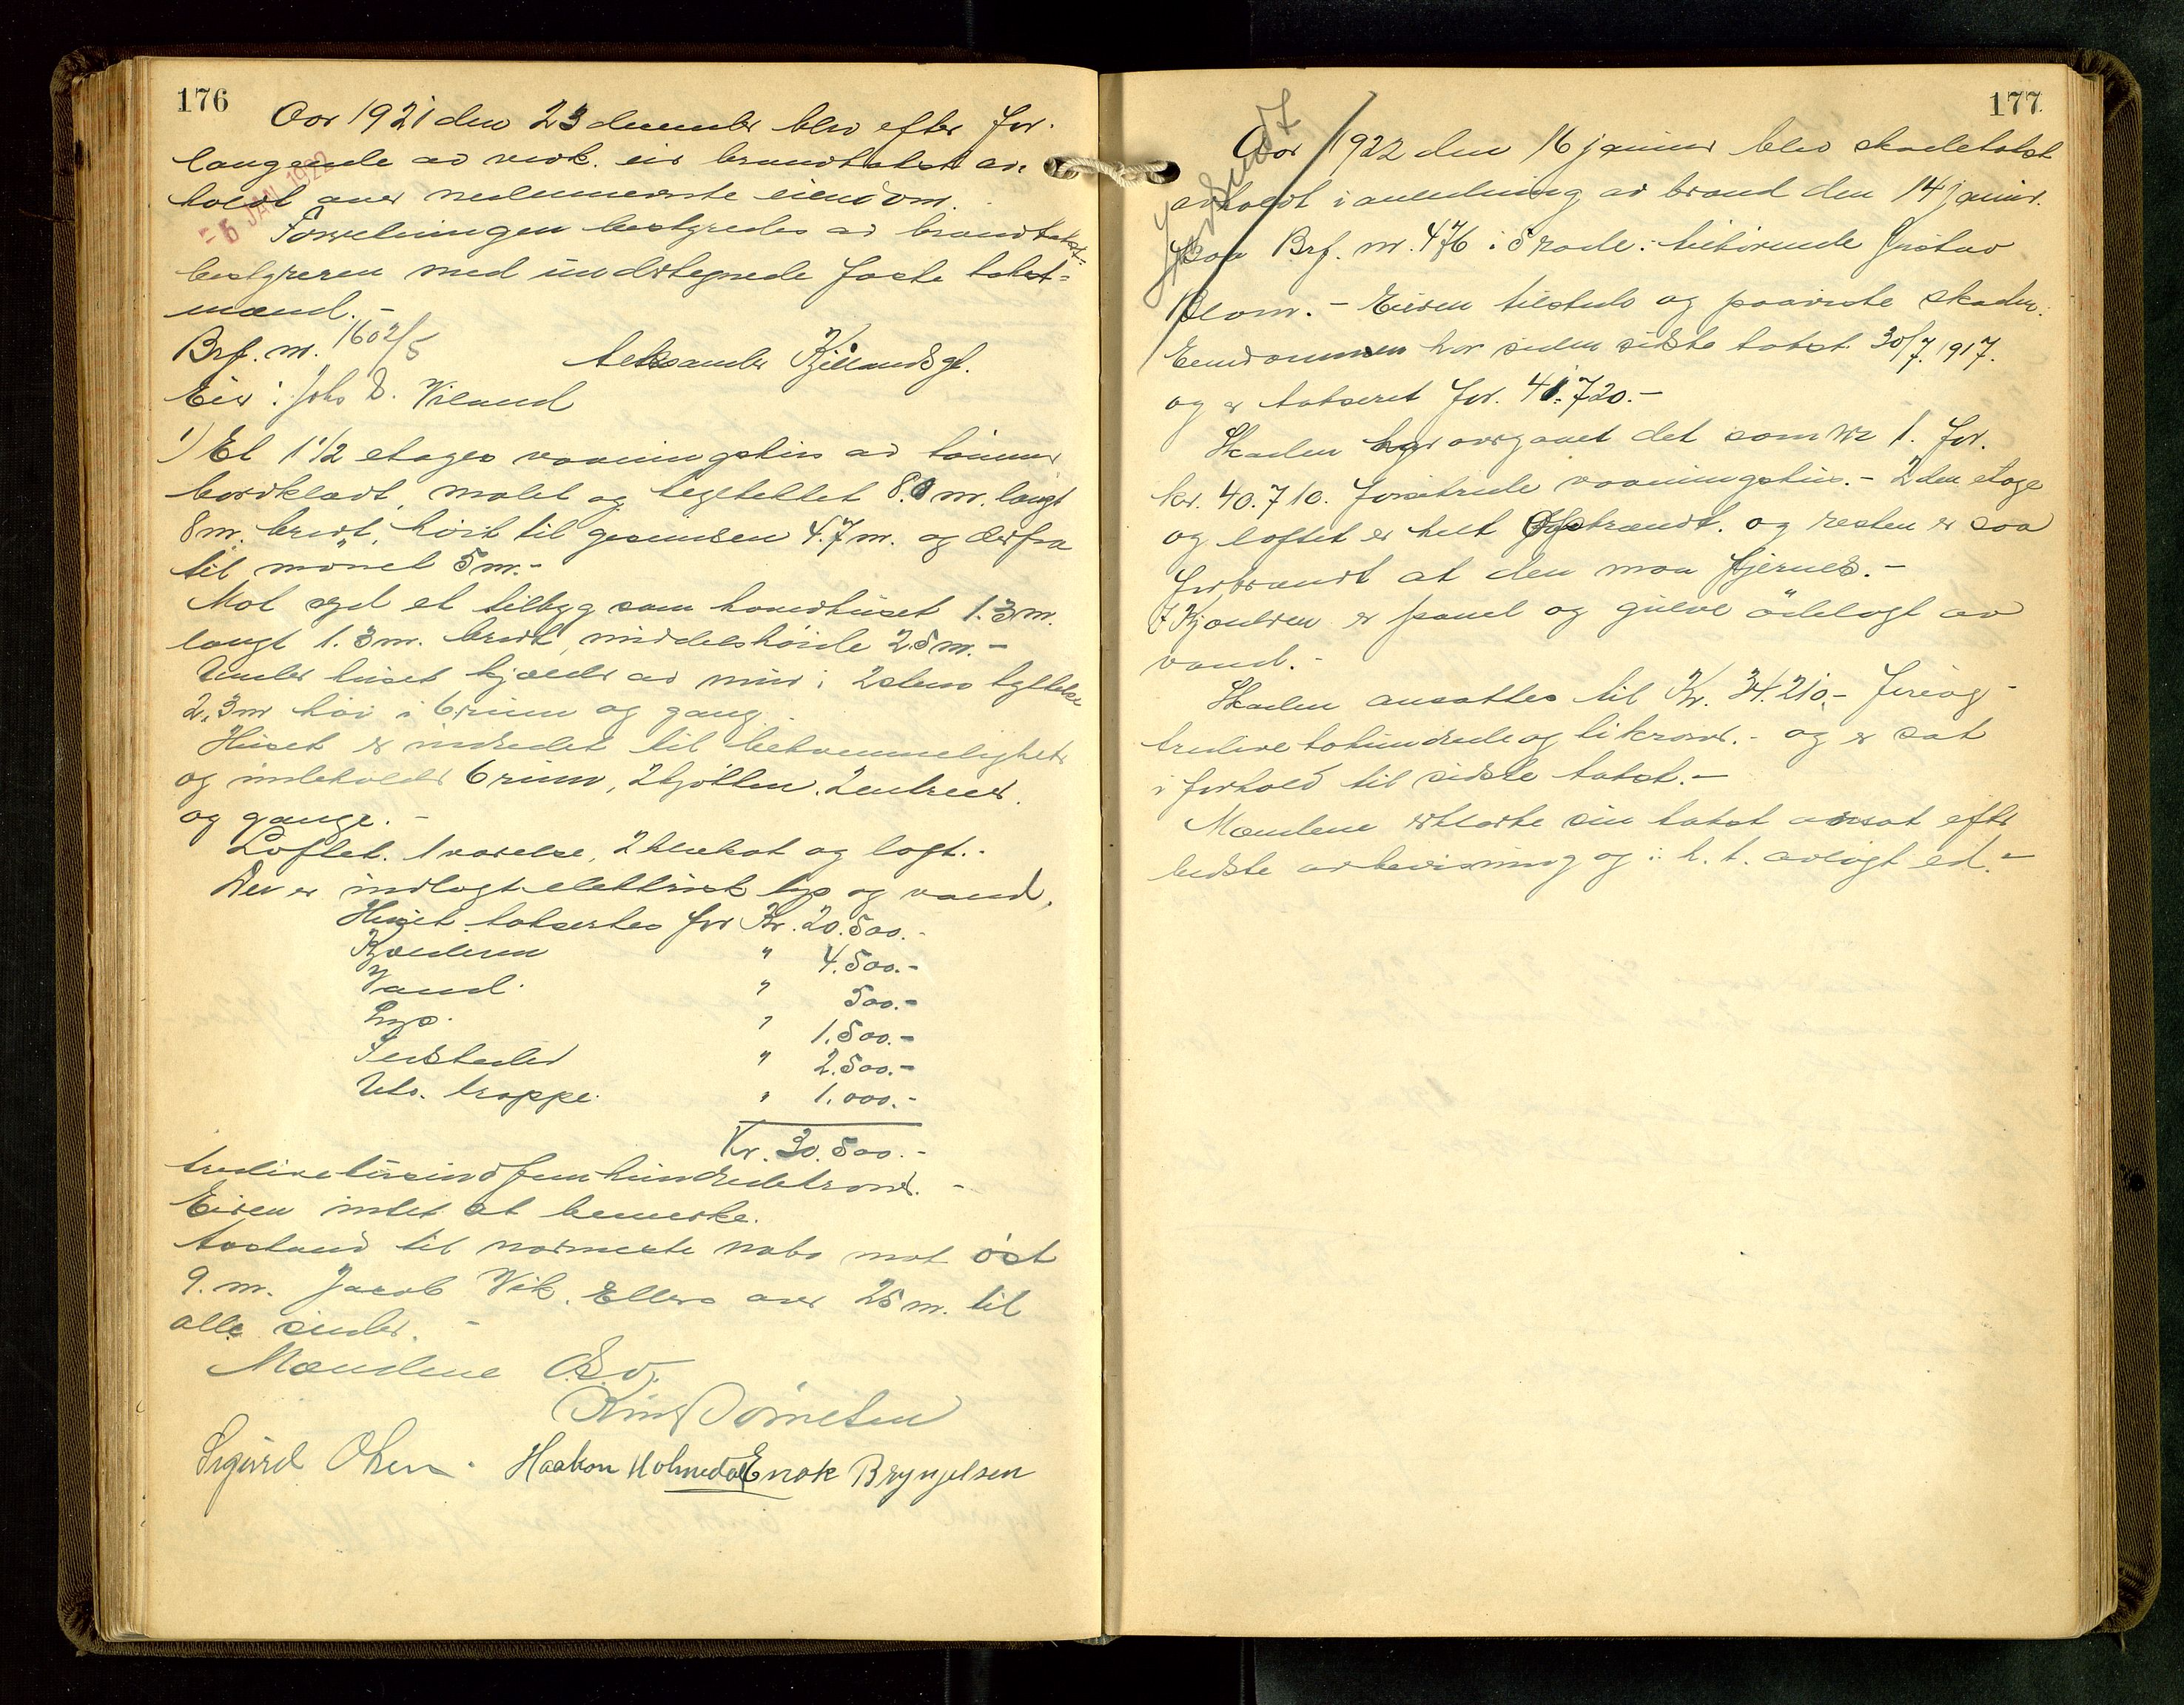 176
Aar 1921 den 23 december blev efter for-
langende av vedk. eier brandtakst av-
holdt over nedennevnte eiendom.
- 5 JAN 1922
Forretningen bestyredes av brandtakst-
bestyreren med undertegnede faste takst-
mænd. -
Brf. nr. 1602/5 Aleksander Kiellands gt.
Eier: Johs D. Viland
1) Et 1 1/2 etages vaaningshus av tømmer
bordklædt, malet og tegltekket 8.0 m. langt
8 m. bredt, høit til gesimsen 4.7 m. og derfra
til mønet 5 m. -
Mot syd et tilbyg som hovedhuset 1.3 m.
langt 1.3 m. bredt, middelshøide 2.5 m. -
Under huset kjælder av mur i 2 stens tykkelse
2,3 m høi i 6 rum og gang.
Huset er indredet til bekvemmeligheter
og indeholder 6 rum, 2 kjøkken, 2 entreer
og gange. -
Loftet. 1 værelse, 2 klekot og loft. -
Der er indlagt elektrisk lys og vand.
Huset takseres for Kr. 20.500. -
Kjælderen " 4.500. -
Vand. " 500. -
Lys. " 1.500. -
Ildsteder " 2.500. -
Utv. trappe. " 1.000. -
Kr. 30.500. -
tredivetusindfemhundredekroner. -
Eieren intet at bemerke.
Avstand til nærmeste nabo mot øst
9. m. Jacob Vik. Ellers over 25 m. til
alle sider. -
Mændene
Sigurd Olsen. Haakon Holmedal Enok Bryngelsen
177
Aar 1922 den 16 januar blev skadetakst
avholdt i anledning av brand den 14 januar.
paa Brf. nr. 476 i 5 rode. tilhørende Gustav
Blom. - Eieren tilstede og paaviste skaden.
Eiendommen har siden sidste takst 30/7. 1917.
og er takseret for. 41.720. -
Skaden har overgaaet det som nr 1. for.
kr. 40.710. forsikrede vaaningshus. - 2den etage
og loftet er helt opbrændt. og resten er saa
forbrændt at den maa fjernes. -
I Kjælderen er panel og gulve ødelagt av
vand. -
Skaden ansattes til Kr. 34.210. - fireog-
tredive tohundrede og ti kroner. - og er sat
i forhold til sidste takst. -
Mændene erklærte sin takst avsat efter
bedste overbevisning og i. h. t. avlagt ed. -